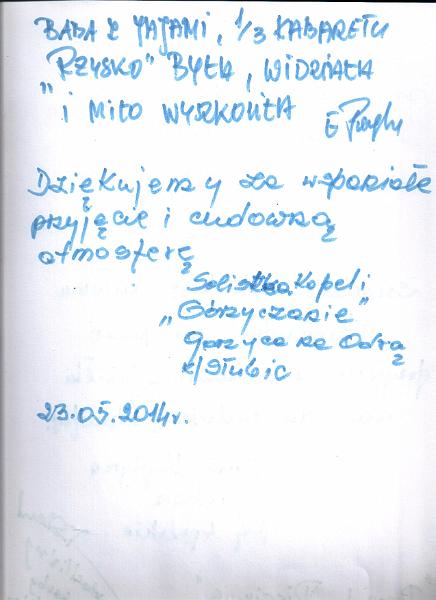 BABA Z JAJAMI, 1/3 KABARETU
„RZYSKO" BYŁA, WIDZIAŁA
i MIŁO WYSKOCZYŁA
E
Dziękujemy za wspaniałe
przyjęcie i cudowną
atmosferę
Solistka Kapeli
„Górzyczanie"
Gorzyca na Odrą
k/Słubic
23.05.2014r.